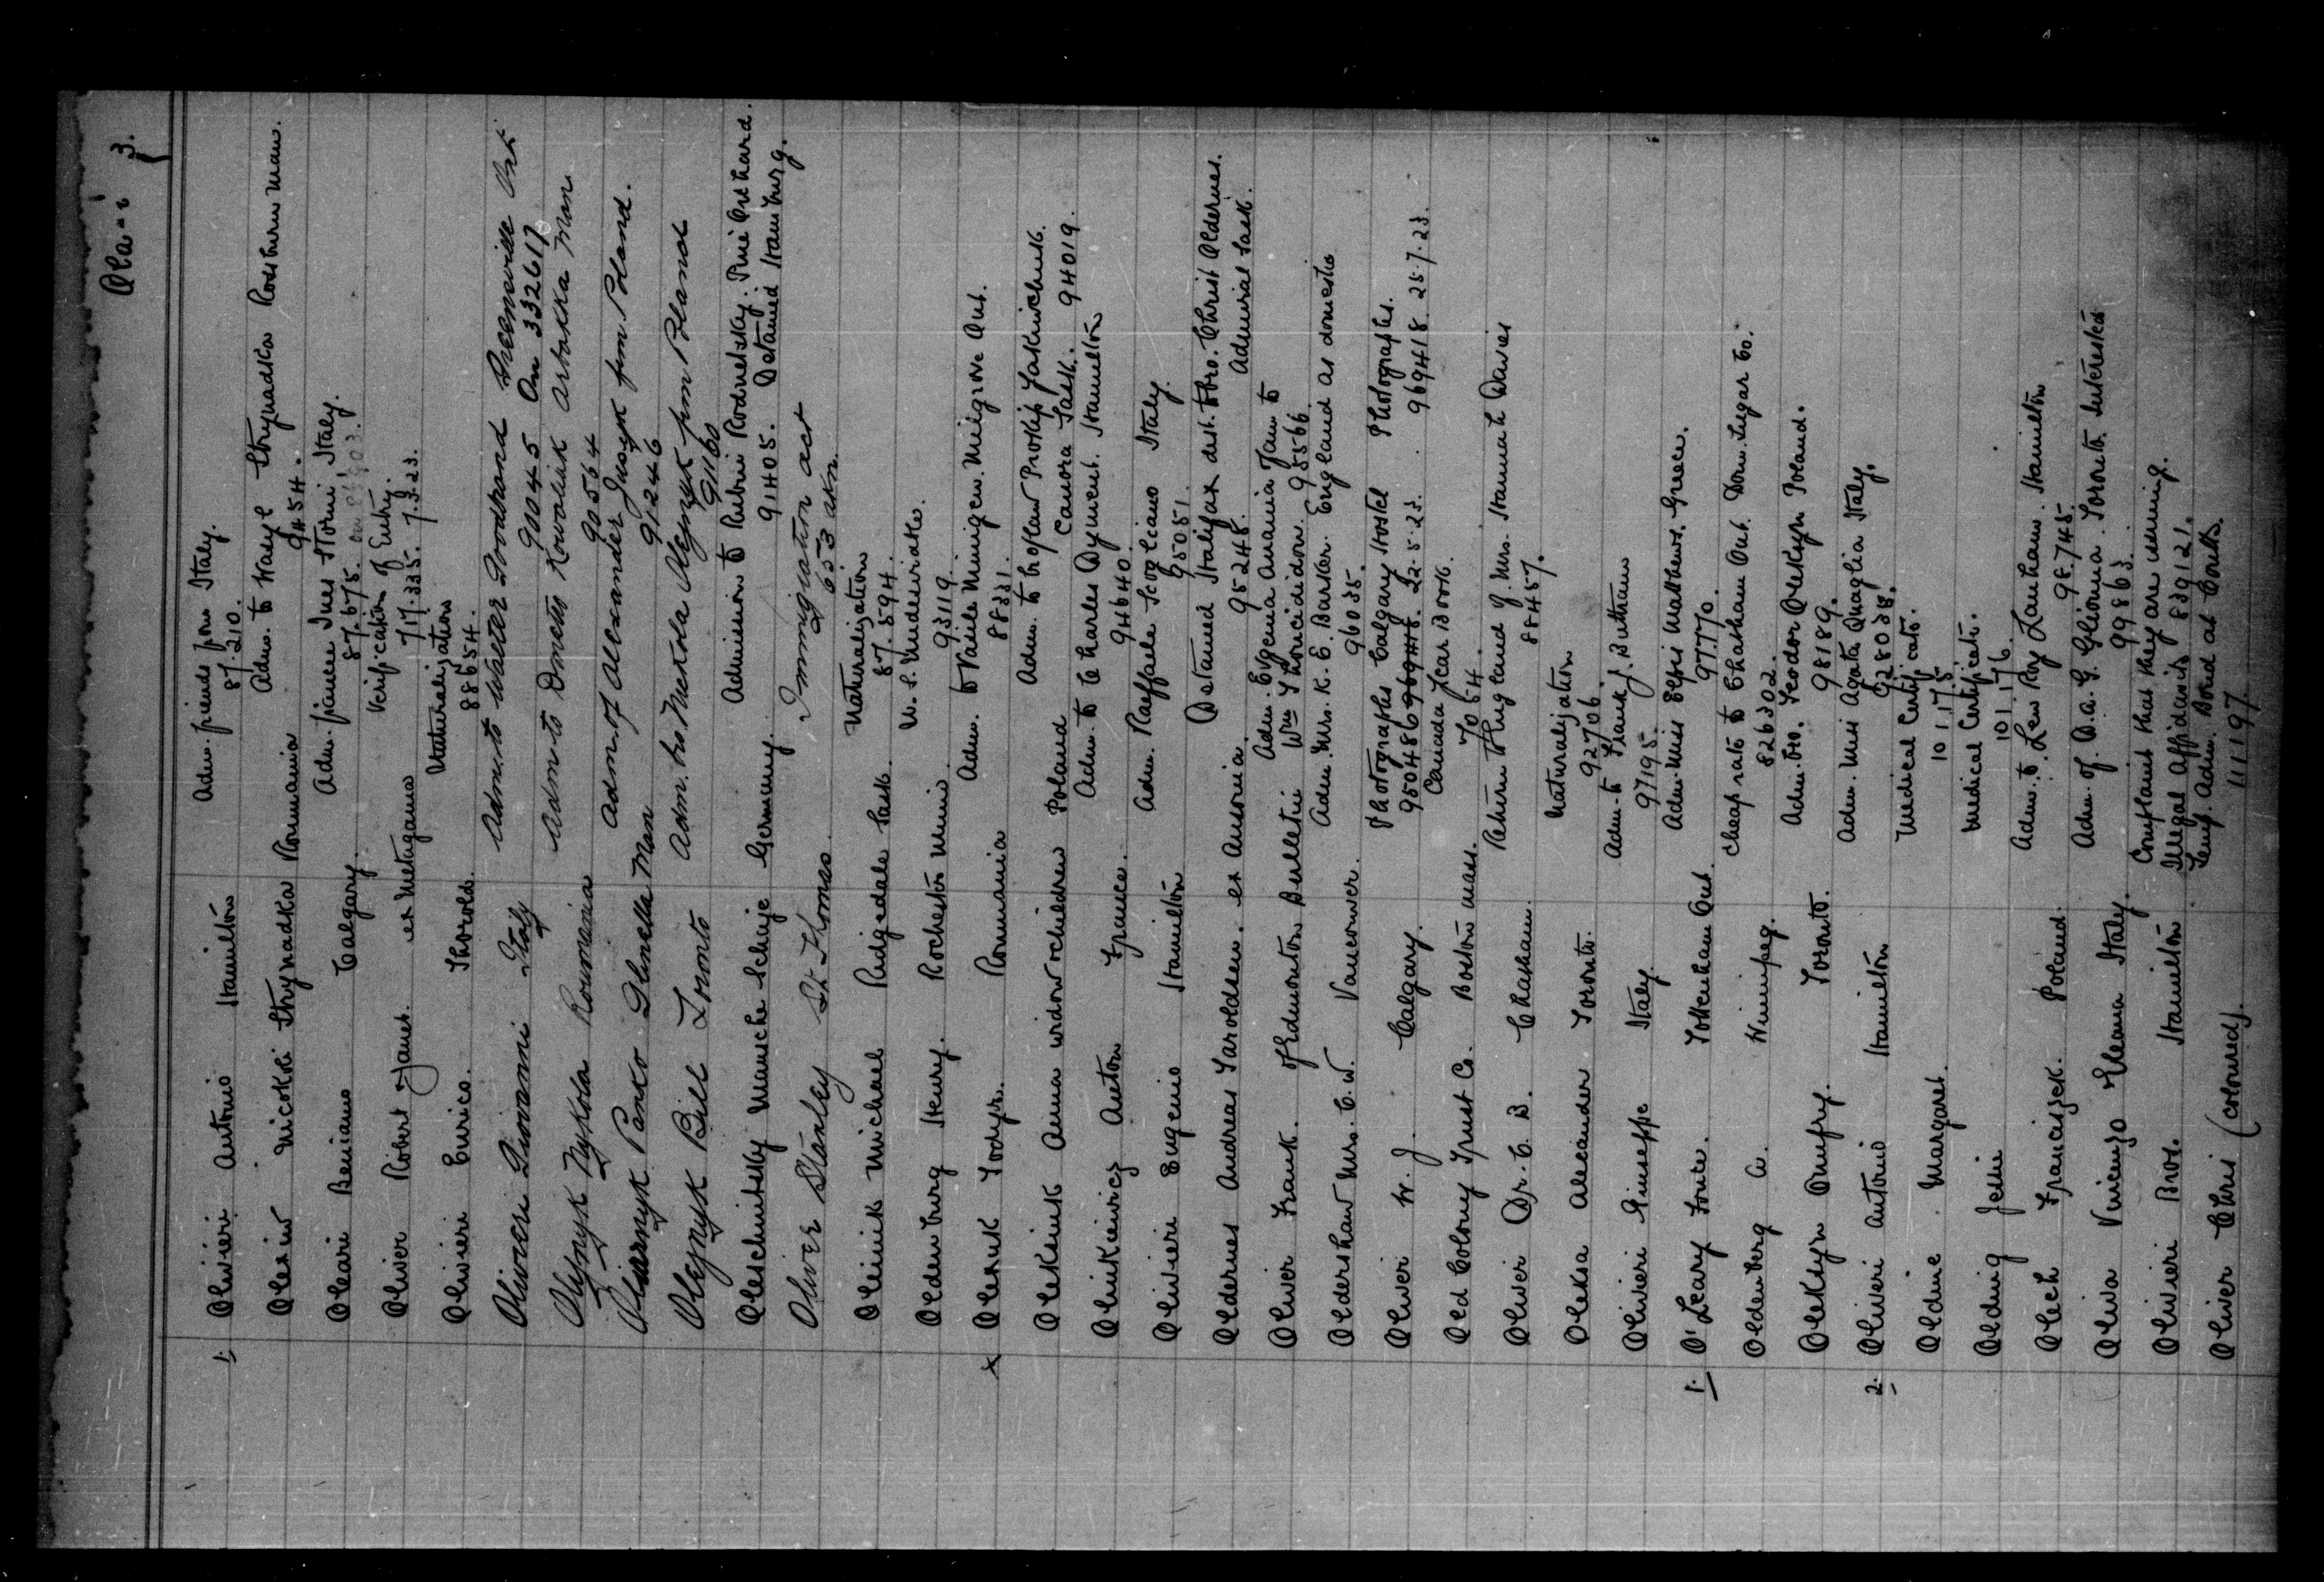 Ola-i 3.
1. Olivieri Antonio Hamilton Adm. friends from Italy.
87.210.
Olexin Nicokoi Strynadka Roumania Adm. to Wasyl Strynadka Rosthern Man.
9454.
Oleari Benians Calgary. Adm. fiancee Ines Storni Italy.
87.675.
Oliver Robert & Janet. ex Metagama Verification of Entry.
717.335. 7.3.23.
Olivieri Enrico. Thorold. Naturalization
88654.
Olivieri Giovanni Italy Adm. to Walter Goodrand Greenville Ont
90045 On 332617
Olijnyk Nykola Roumania Adm to Dmetro Kowaliuk Arbakka Man.
90564
Panko Glenella Man Adm. of Alexander Jusayk from Poland.
91246
Olejnyk Bill Toronto Adm. bro Mekola Olejnyk from Poland
91160
Oleschnitsky Mansche Schieje Germany. Admission to Rubin Rodnetsky. Pine Orchard.
91405. Detained Hamburg.
Oliver Stanley St. Thomas Immigration act
653 akn.
Oleinik Michael Ridgedale Sask. Naturalization
87.594.
Oldenburg Henry. Rochester Minn. U.S. Undesirable.
93119.
x Olexuk Todyr. Roumania Adm. to Vasile Munigew. Milgrove Ont.
88331.
Olekeiuk Anna widow & children Poland Adm. to Prokip Yakiwchuk.
Canora Sask. 94019.
Olinkiewicz Anton France. Adm. to Charles Dyment. Hamilton
94640.
Olivieri Eugenio Hamilton Adm. Raffaele Scogliano Italy.
95051.
Oldernes Andreas Haroldsen. ex Ausonia. Detained Halifax dest. to bro. Christ Oldernes.
95248. Admiral Sask.
Oliver Frank. of Edmonton Bulletin Adm. Evgenia Anania Jam to
Wm Thoricidion. 95566
Oldershaw Mrs. C.W. Vancouver. Adm. Mrs. K. E. Barker. England as domestic
96035.
Oliver W. J. Calgary. Photographs Calgary Hostel Photographs.
950486 969418. 22.5.23. 969418. 25.7.23.
Old Colony Trust Co. Boston Mass. Canada Year Book.
7054.
Oliver Dr. C. B. Chatham. Return to England of Mrs. Hannah Davies
88457.
Oleksa Alexander Toronto. Naturalization
92706.
Olivieri Giuseppe Italy. Adm. to Frank J. Buttrum
97195.
1. O'Leary Louie. Tottenham Ont. Adm. Miss Elfis Matthews. Greece.
97.770.
Oldenberg A. Winnipeg. Cheap rate to Chatham Ont. Dom. Sugar Co.
826302.
Oleksyn Onufry. Toronto. Adm. bro. Teodor Oleksyn Poland.
98189.
2. Oliveri Antonio Hamilton Adm. Miss Agata Quaglia Italy.
928038.
Oldine Margaret. Medical Certificate.
101175
Olding Jessie Medical Certificate.
101.176.
Olech Franciszek. Poland. Adm. to Lew Roy Lanham. Hamilton
98.745.
Oliva Vincenzo Eleana Italy. Adm. of D.A.G. Glionna. Toronto. Interested
99863.
Olivieri Bros. Hamilton Complaint that they are running.
Illegal Affidavits 839121.
Oliver Chris (coloured). Temp. Adm. Bond at Coutts.
111197.